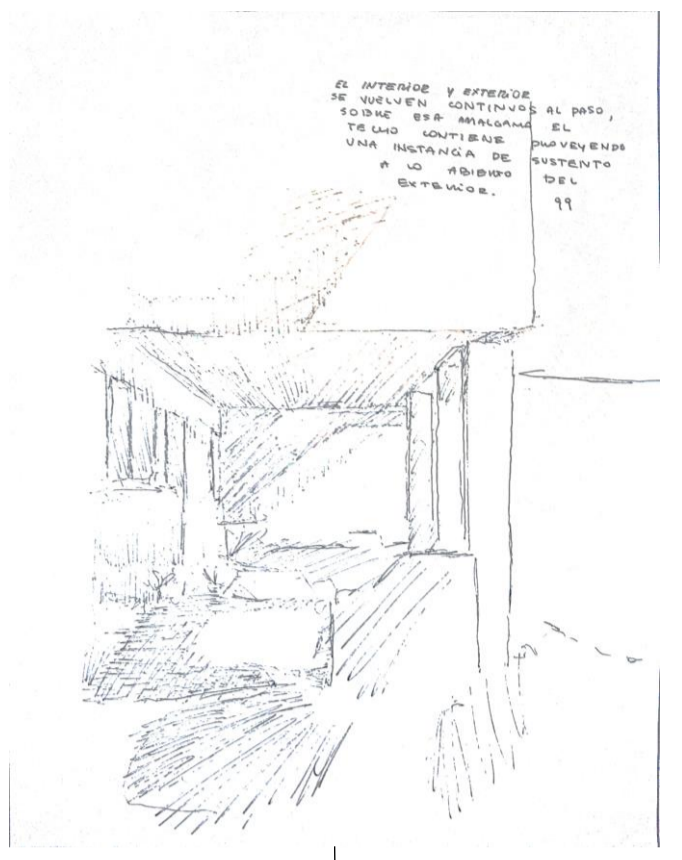 EL INTERIOR Y EXTERIOR
SE VUELVEN CONTINUOS AL PASO,
SOBRE ESA AMALGAMA EL
TECHO CONTIENE PROVEYENDO
UNA INSTANCIA DE SUSTENTO
A LO ABIERTO DEL
EXTERIOR.
99